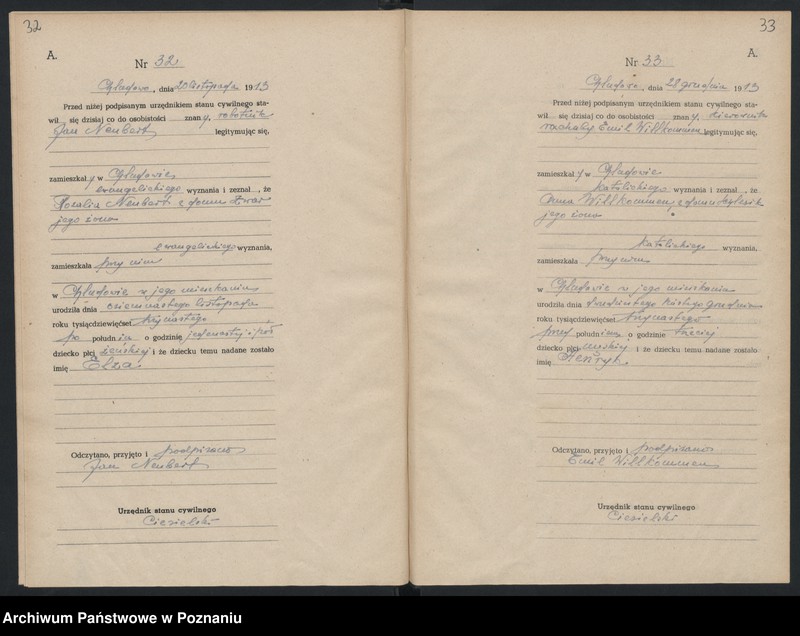 32
A.
Nr 32
dnia 20 listopada 1913
Przed niżej podpisanym urzędnikiem stanu cywilnego sta-
wił się dzisiaj co do osobistości znany, robotnik
Jan Neubert legitymując się,
zamieszkały w
ewangelickiego wyznania i zeznał, że
Rozalia Neubert z domu
jego żona
ewangelickiego wyznania,
zamieszkała przy nim
w w jego mieszkaniu
urodziła dnia osiemnastego listopada
roku tysiącdziewięćset trzynastego
po południu o godzinie jedenastej i pół
dziecko płci żeńskiej i że dziecku temu nadane zostało
imię Elza
Odczytano, przyjęto i podpisano
Jan Neubert
Urzędnik stanu cywilnego
Ciesielski
33
A.
Nr 33
dnia 28 grudnia 1913
Przed niżej podpisanym urzędnikiem stanu cywilnego sta-
wił się dzisiaj co do osobistości znany,
Emil Willkommen legitymując się,
zamieszkały w
katolickiego wyznania i zeznał, że
Anna Willkommen z domu
jego żona
katolickiego wyznania,
zamieszkała przy nim
w w jego mieszkaniu
urodziła dnia grudnia
roku tysiącdziewięćset trzynastego
przed południem o godzinie trzeciej
dziecko płci męskiej i że dziecku temu nadane zostało
imię Henryk
Odczytano, przyjęto i podpisano
Emil Willkommen
Urzędnik stanu cywilnego
Ciesielski
Archiwum Państwowe w Poznaniu